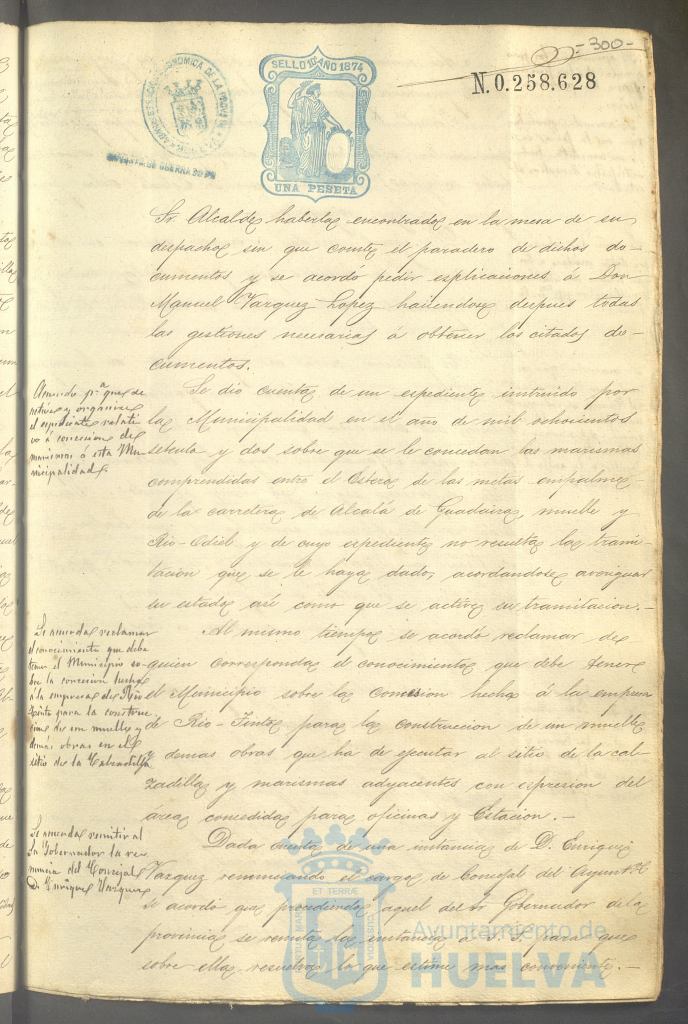 -300-
N.0.258.628
SELLO 10º AÑO 1874
UNA PESETA
ECONOMICA DE LA
Sr. Alcalde haberlas encontrado en la mesa de su
despacho sin que conste el paradero de dichos do-
cumentos y se acordó pedir esplicaciones á Don
Manuel Vazquez Lopez haciendose despues todas
las gestiones necesarias á obtener los citados do-
cumentos.
Acuerdo pª que se
active y organice
el espediente relati
vo á concesion de
marismas á esta Mu
nicipalidad.
Se dio cuenta de un espediente instruido por
la Municipalidad en el año de mil ochocientos
setenta y dos sobre que se le concedan las marismas
comprendidas entre el Estero de las metas empalme
de la carretera de Alcalá de Guadaira, muelle y
Rio-Odiel y de cuyo espediente no resulta la trami-
tacion que se le haya dado, acordandose averiguar
su estado asi como que se active su tramitacion.-
Se acuerda reclamar
el conocimiento que debe
tener el Municipio so-
bre la concesion hecha
á la empresa de Rio
Tinto para la construc
cion de un muelle y
demás obras en el
sitio de la Calzadilla
Al mismo tiempo se acordó reclamar de
quien corresponda el conocimiento que debe tener
el Municipio sobre la Concesion hecha á la empresa
de Rio-Tinto para la construccion de un muelle
y demas obras que ha de ejecutar al sitio de la cal-
zadilla y marismas adyacentes con espresion del
área concedida para oficinas y Estacion.-
Se acuerda remitir al
Sr Gobernador la re
nuncia del Concejal
D. Enrique Vazquez
Dada cuenta de una instancia de D. Enrique
Vazquez renunciando el cargo de Concejal del Ayuntº
se acordó que procediendo aquel del Sr Gobernador de la
provincia se remita la instancia á S. S. para que
sobre ella resuelva lo que estime mas conveniente.-
ET TERRÆ
Ayuntamiento de
HUELVA